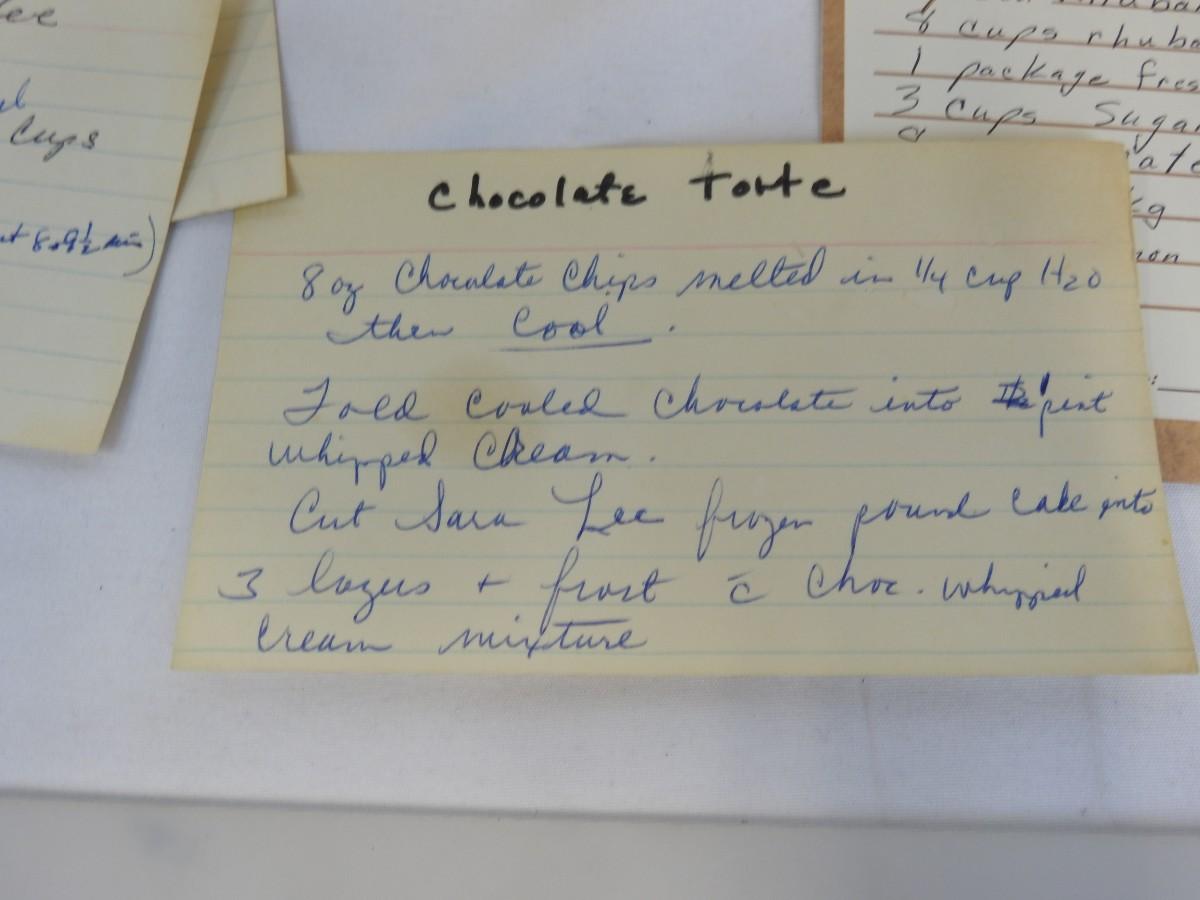 Cups
8 cups
1 package
3 cups Sugar
Chocolate Torte
8 oz Chocolate Chips melted in 1/4 cup H2O
then Cool.
Fold cooled chocolate into 1 pint
whipped Cream.
Cut Sara Lee frozen pound cake into
3 layers + frost c̄ choc. whipped
cream mixture